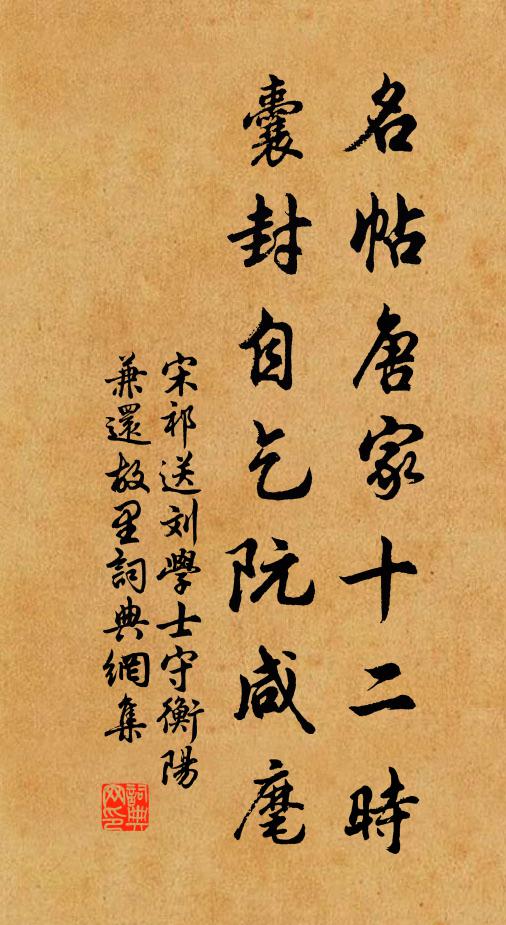 名帖唐家十二時
囊封自乞阮咸麾
宋祁送刘學士守衡陽
兼還故里詞典網集
詞典網印